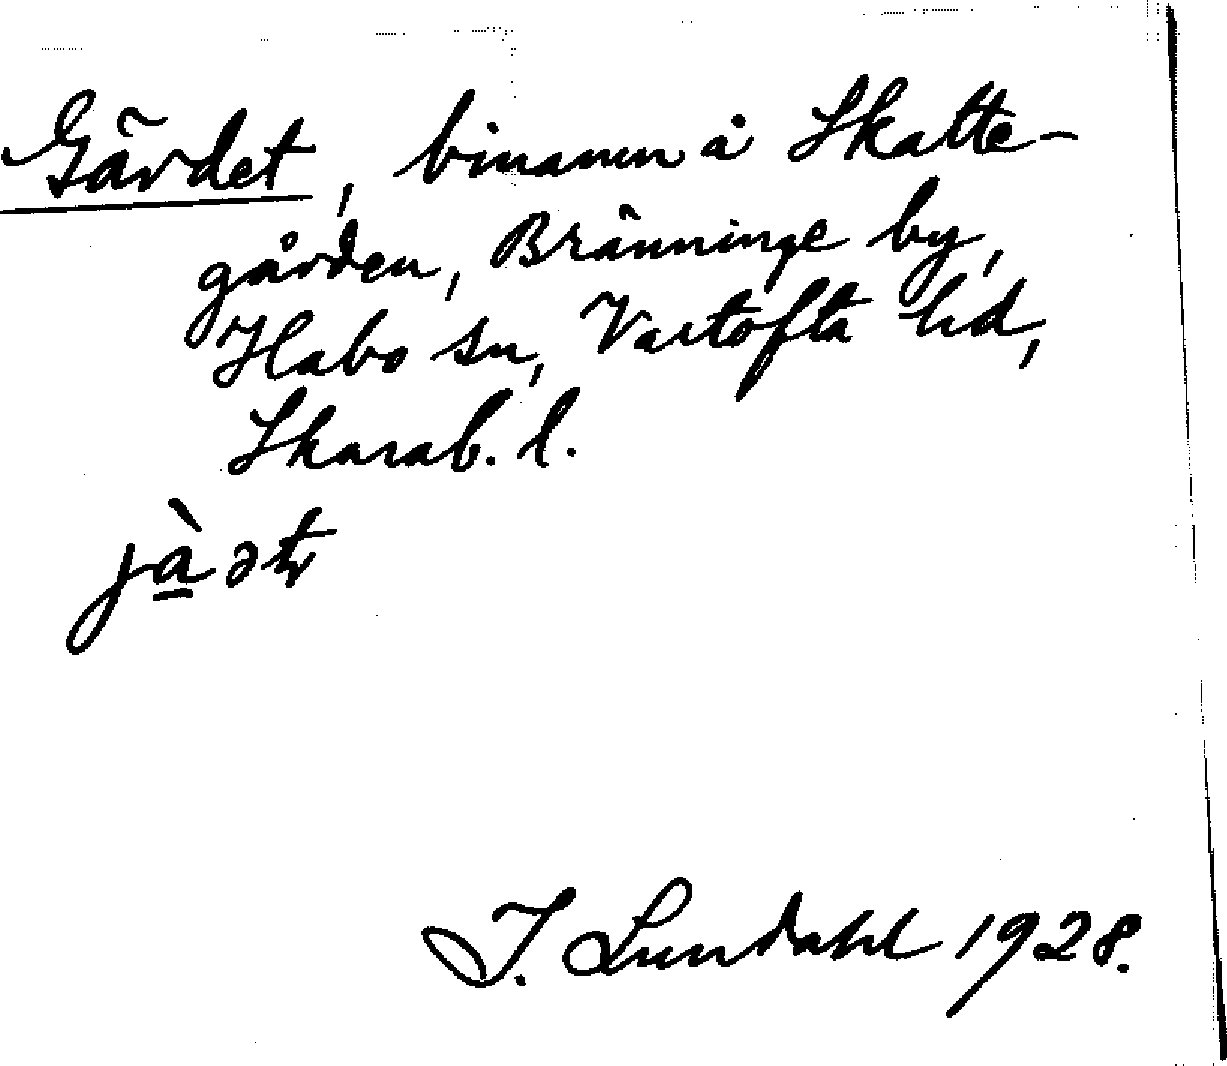 Gärdet, binamn å Skatte-
gården, Bränninge by,
Habo sn, Vartofta hd,
Skarab. l.
jà̱ət
I. Lundahl 1928.